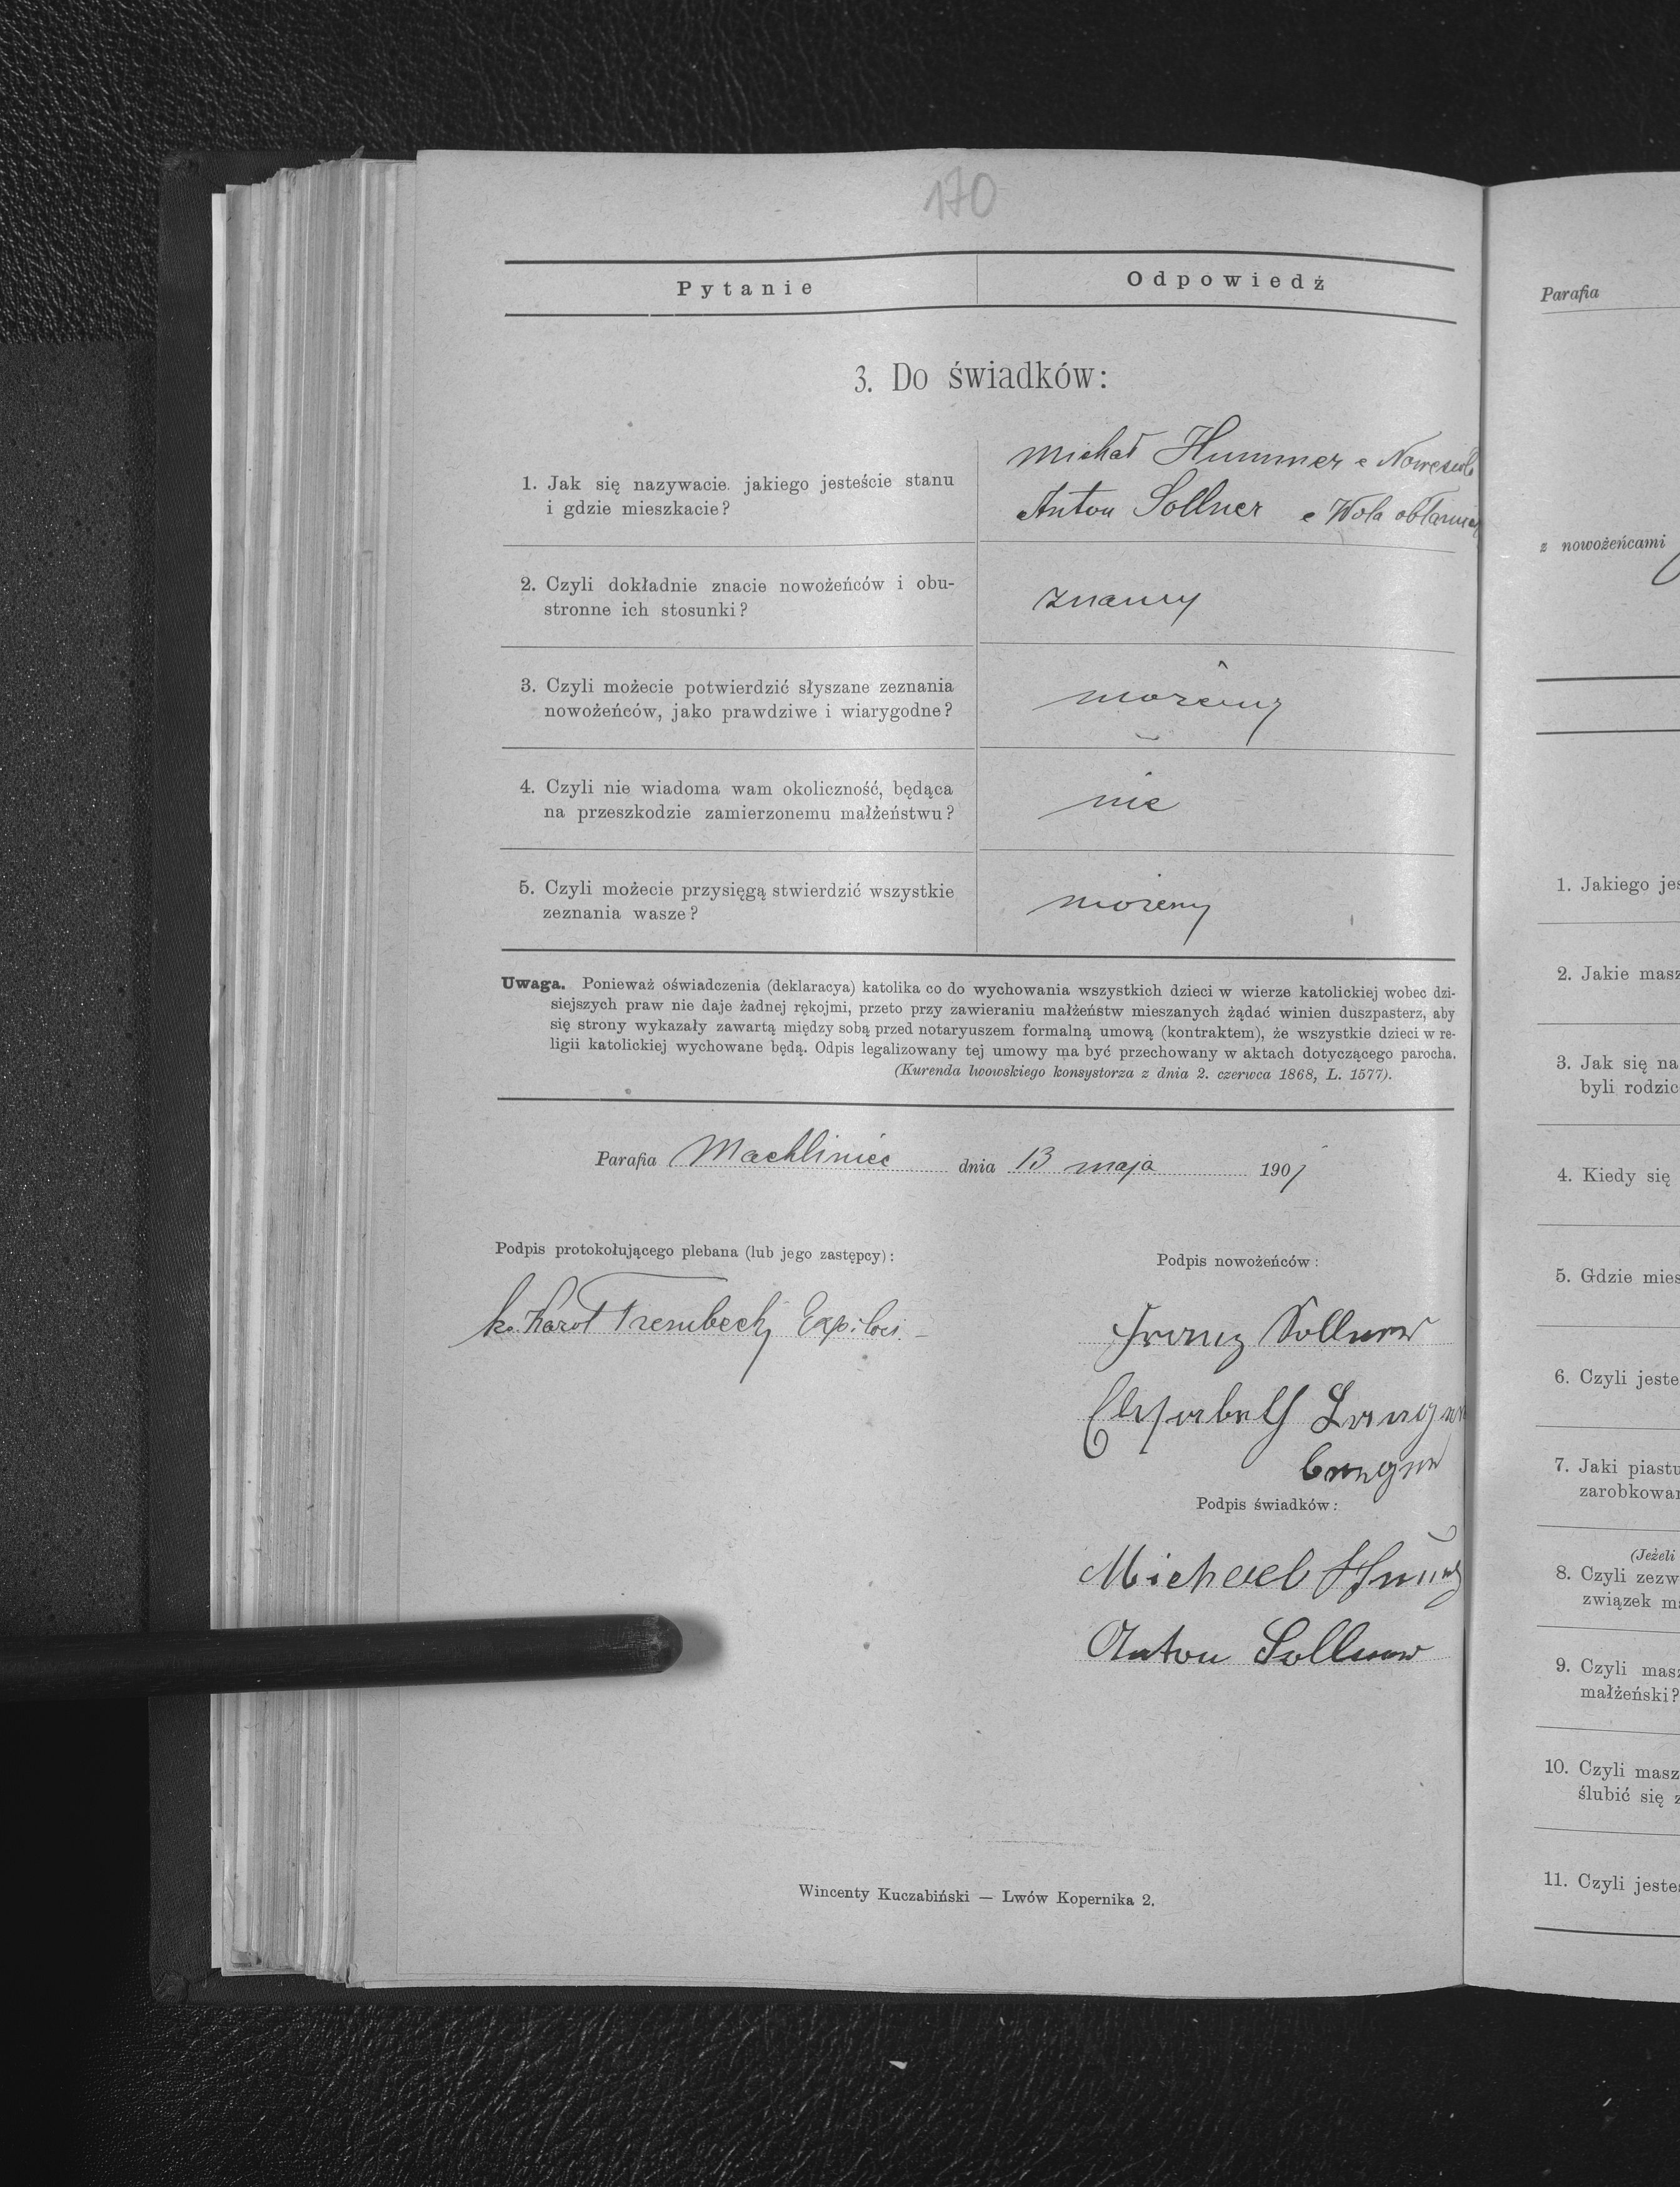 170
Pytanie
Odpowiedź
3. Do świadków:
1. Jak się nazywacie, jakiego jesteście stanu
i gdzie mieszkacie?
Michał Hummer e Nowesioło
Anton Sollner e Wola obłaznica
2. Czyli dokładnie znacie nowożeńców i obu-
stronne ich stosunki?
znamy
3. Czyli możecie potwierdzić słyszane zeznania
nowożeńców, jako prawdziwe i wiarygodne?
możemy
4. Czyli nie wiadoma wam okoliczność, będąca
na przeszkodzie zamierzonemu małżeństwu?
nie
5. Czyli możecie przysięgą stwierdzić wszystkie
zeznania wasze?
możemy
Uwaga. Ponieważ oświadczenia (deklaracya) katolika co do wychowania wszystkich dzieci w wierze katolickiej wobec dzi-
siejszych praw nie daje żadnej rękojmi, przeto przy zawieraniu małżeństw mieszanych żądać winien duszpasterz, aby
się strony wykazały zawartą między sobą przed notaryuszem formalną umową (kontraktem), że wszystkie dzieci w re-
ligii katolickiej wychowane będą. Odpis legalizowany tej umowy ma być przechowany w aktach dotyczącego parocha.
(Kurenda lwowskiego konsystorza z dnia 2. czerwca 1868, L. 1577).
Parafia Machliniec dnia 13 maja 1901
Podpis protokołującego plebana (lub jego zastępcy):
ks. Karol Trembecki Exp. loci.
Podpis nowożeńców:
Franz Sollner
Elisabeth
Podpis świadków:
Michael
Anton Sollner
Wincenty Kuczabiński — Lwów Kopernika 2.
Parafia
z nowożeńcami
1. Jakiego jes
2. Jakie masz
3. Jak się na
byli rodzic
4. Kiedy się
5. Gdzie mies
6. Czyli jeste
7. Jaki piastu
zarobkowan
(Jeżeli
8. Czyli zezw
związek ma
9. Czyli masz
małżeński?
10. Czyli masz
ślubić się z
11. Czyli jeste